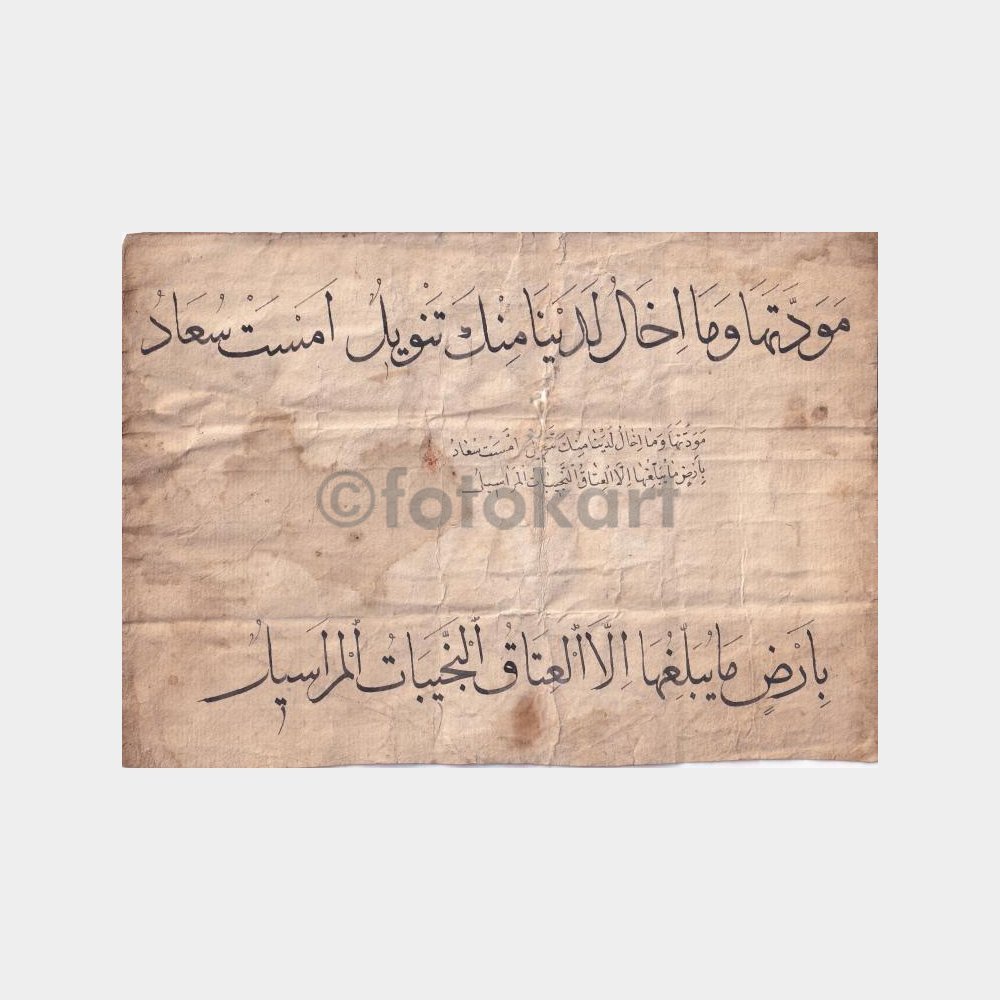 مَوَدَّتَهَا وَمَا اِخَالُ لَدَيْنَا مِنْكِ تَنْوِيلُ اَمْسَتْ سُعَادُ
مَوَدَّتَهَا وَمَا اِخَالُ لَدَيْنَا مِنْكِ تَنْوِيلُ اَمْسَتْ سُعَادُ
بِاَرْضٍ مَا يُبَلِّغُهَا اِلَّا الْعِتَاقُ النَّجِيبَاتُ الْمَرَاسِيلُ
©fotokart
بِاَرْضٍ مَا يُبَلِّغُهَا اِلَّا الْعِتَاقُ النَّجِيبَاتُ الْمَرَاسِيلُ